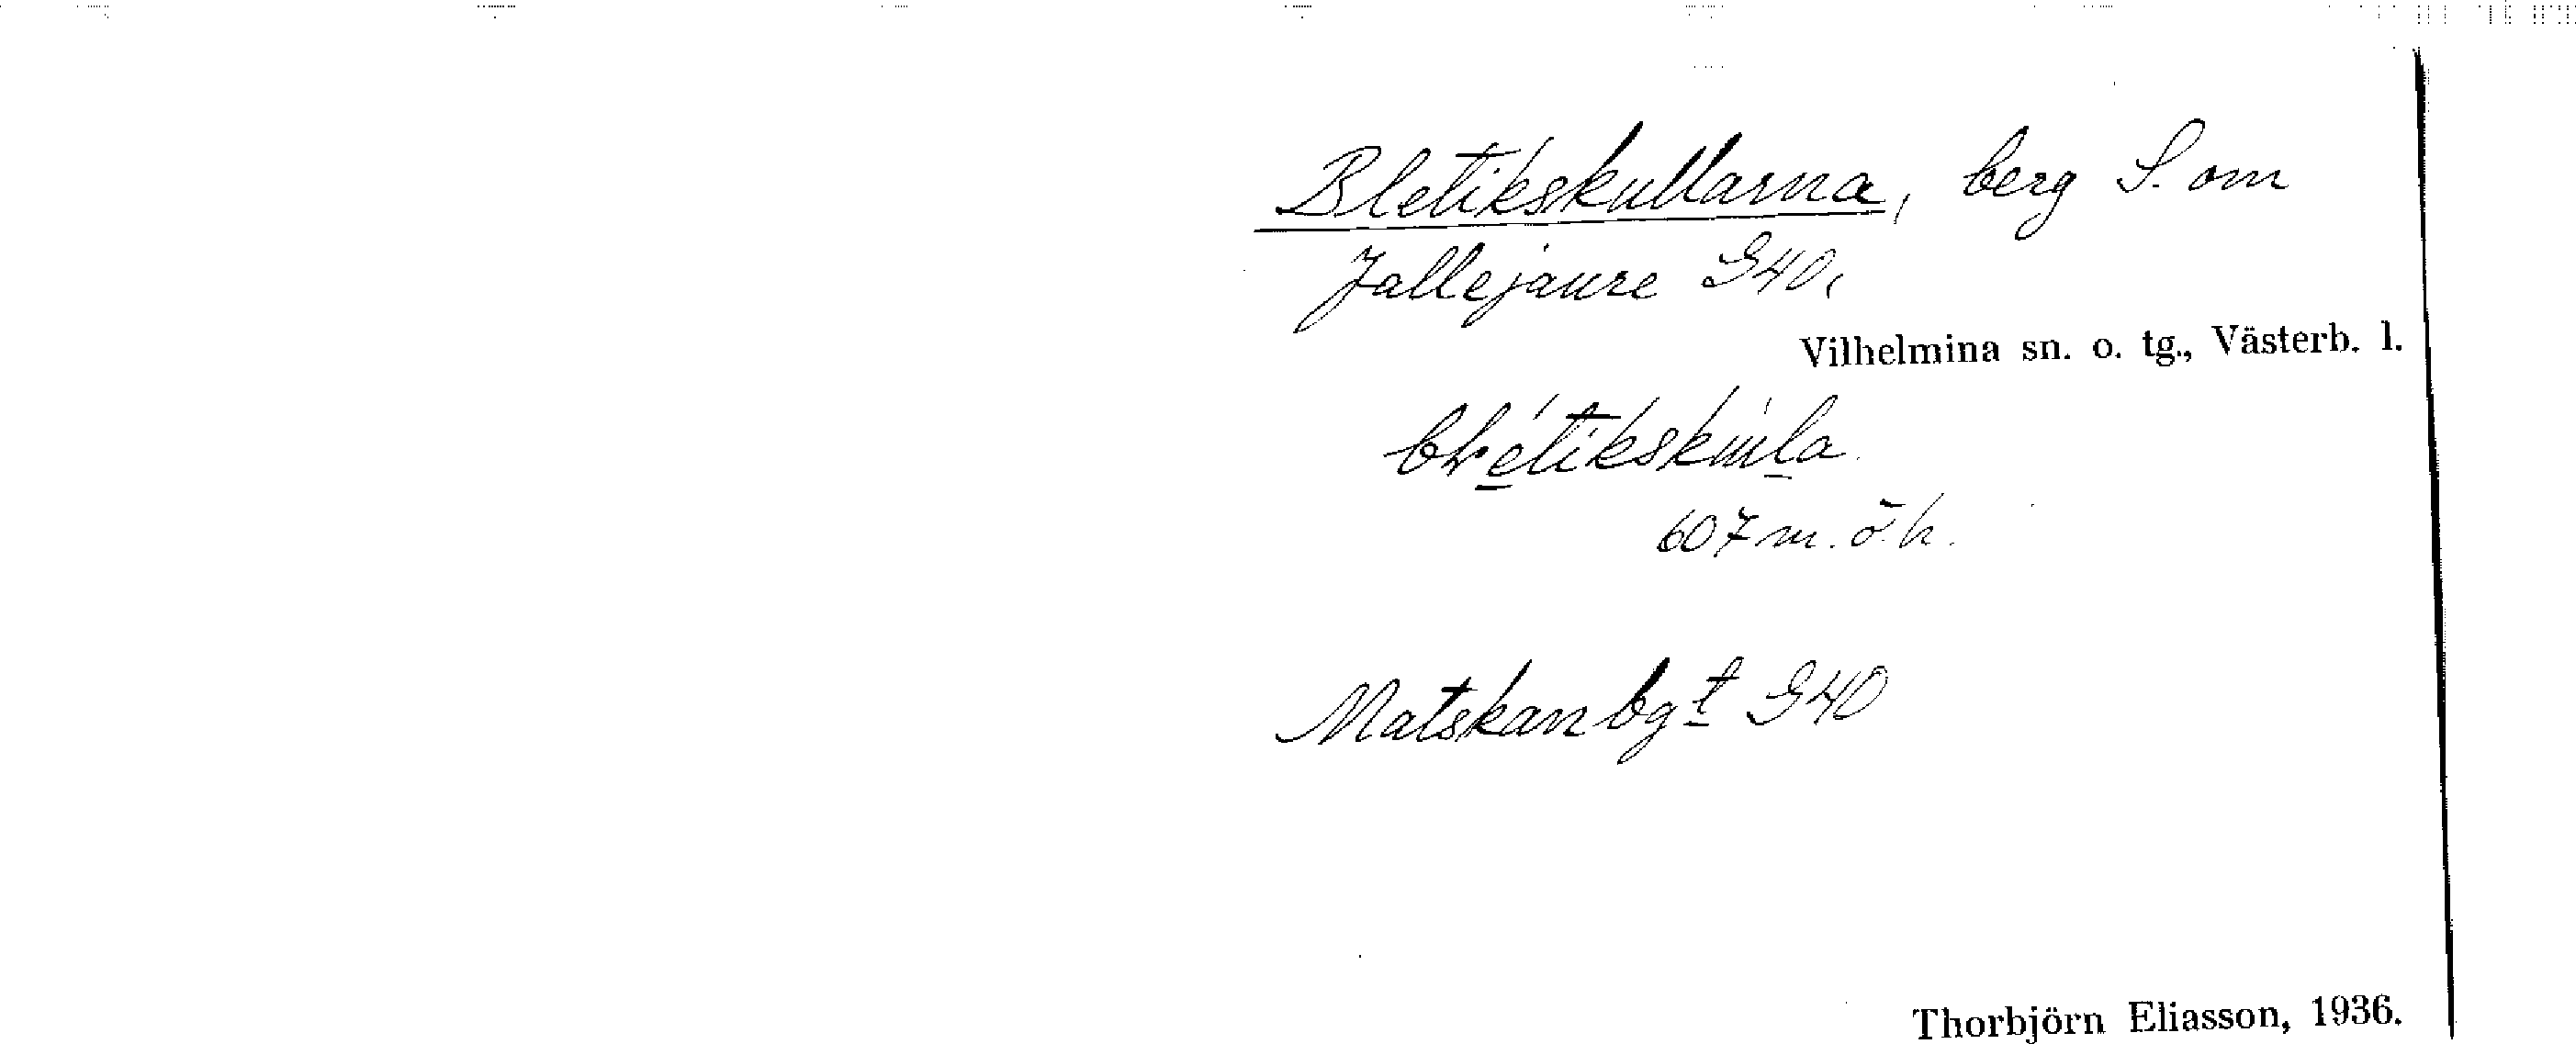 Bletikskullarna, berg S. om
Jallejaure G40,
Vilhelmina sn. o. tg., Västerb. l.
607 m. ö. h.
Matskanbgt G40
Thorbjörn Eliasson, 1936.